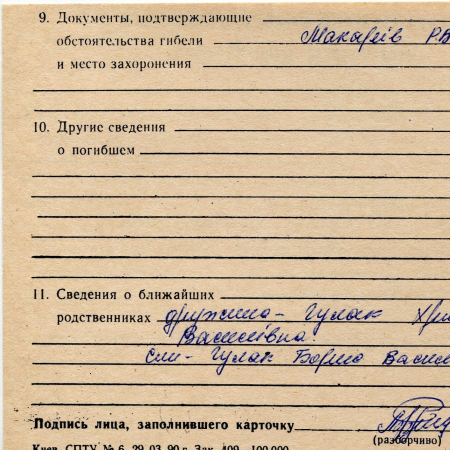 9. Документы, подтверждающие
обстоятельства гибели Макарів Р.В
и место захоронения
10. Другие сведения
о погибшем
11. Сведения о ближайших
родственниках дружина - Гулак Хри
Василівна
син - Гулак Борис Васил
Подпись лица, заполнившего карточку
(разборчиво)
Киев, СПТУ № 6, 29.03.90 г. Зак. 409—100.000